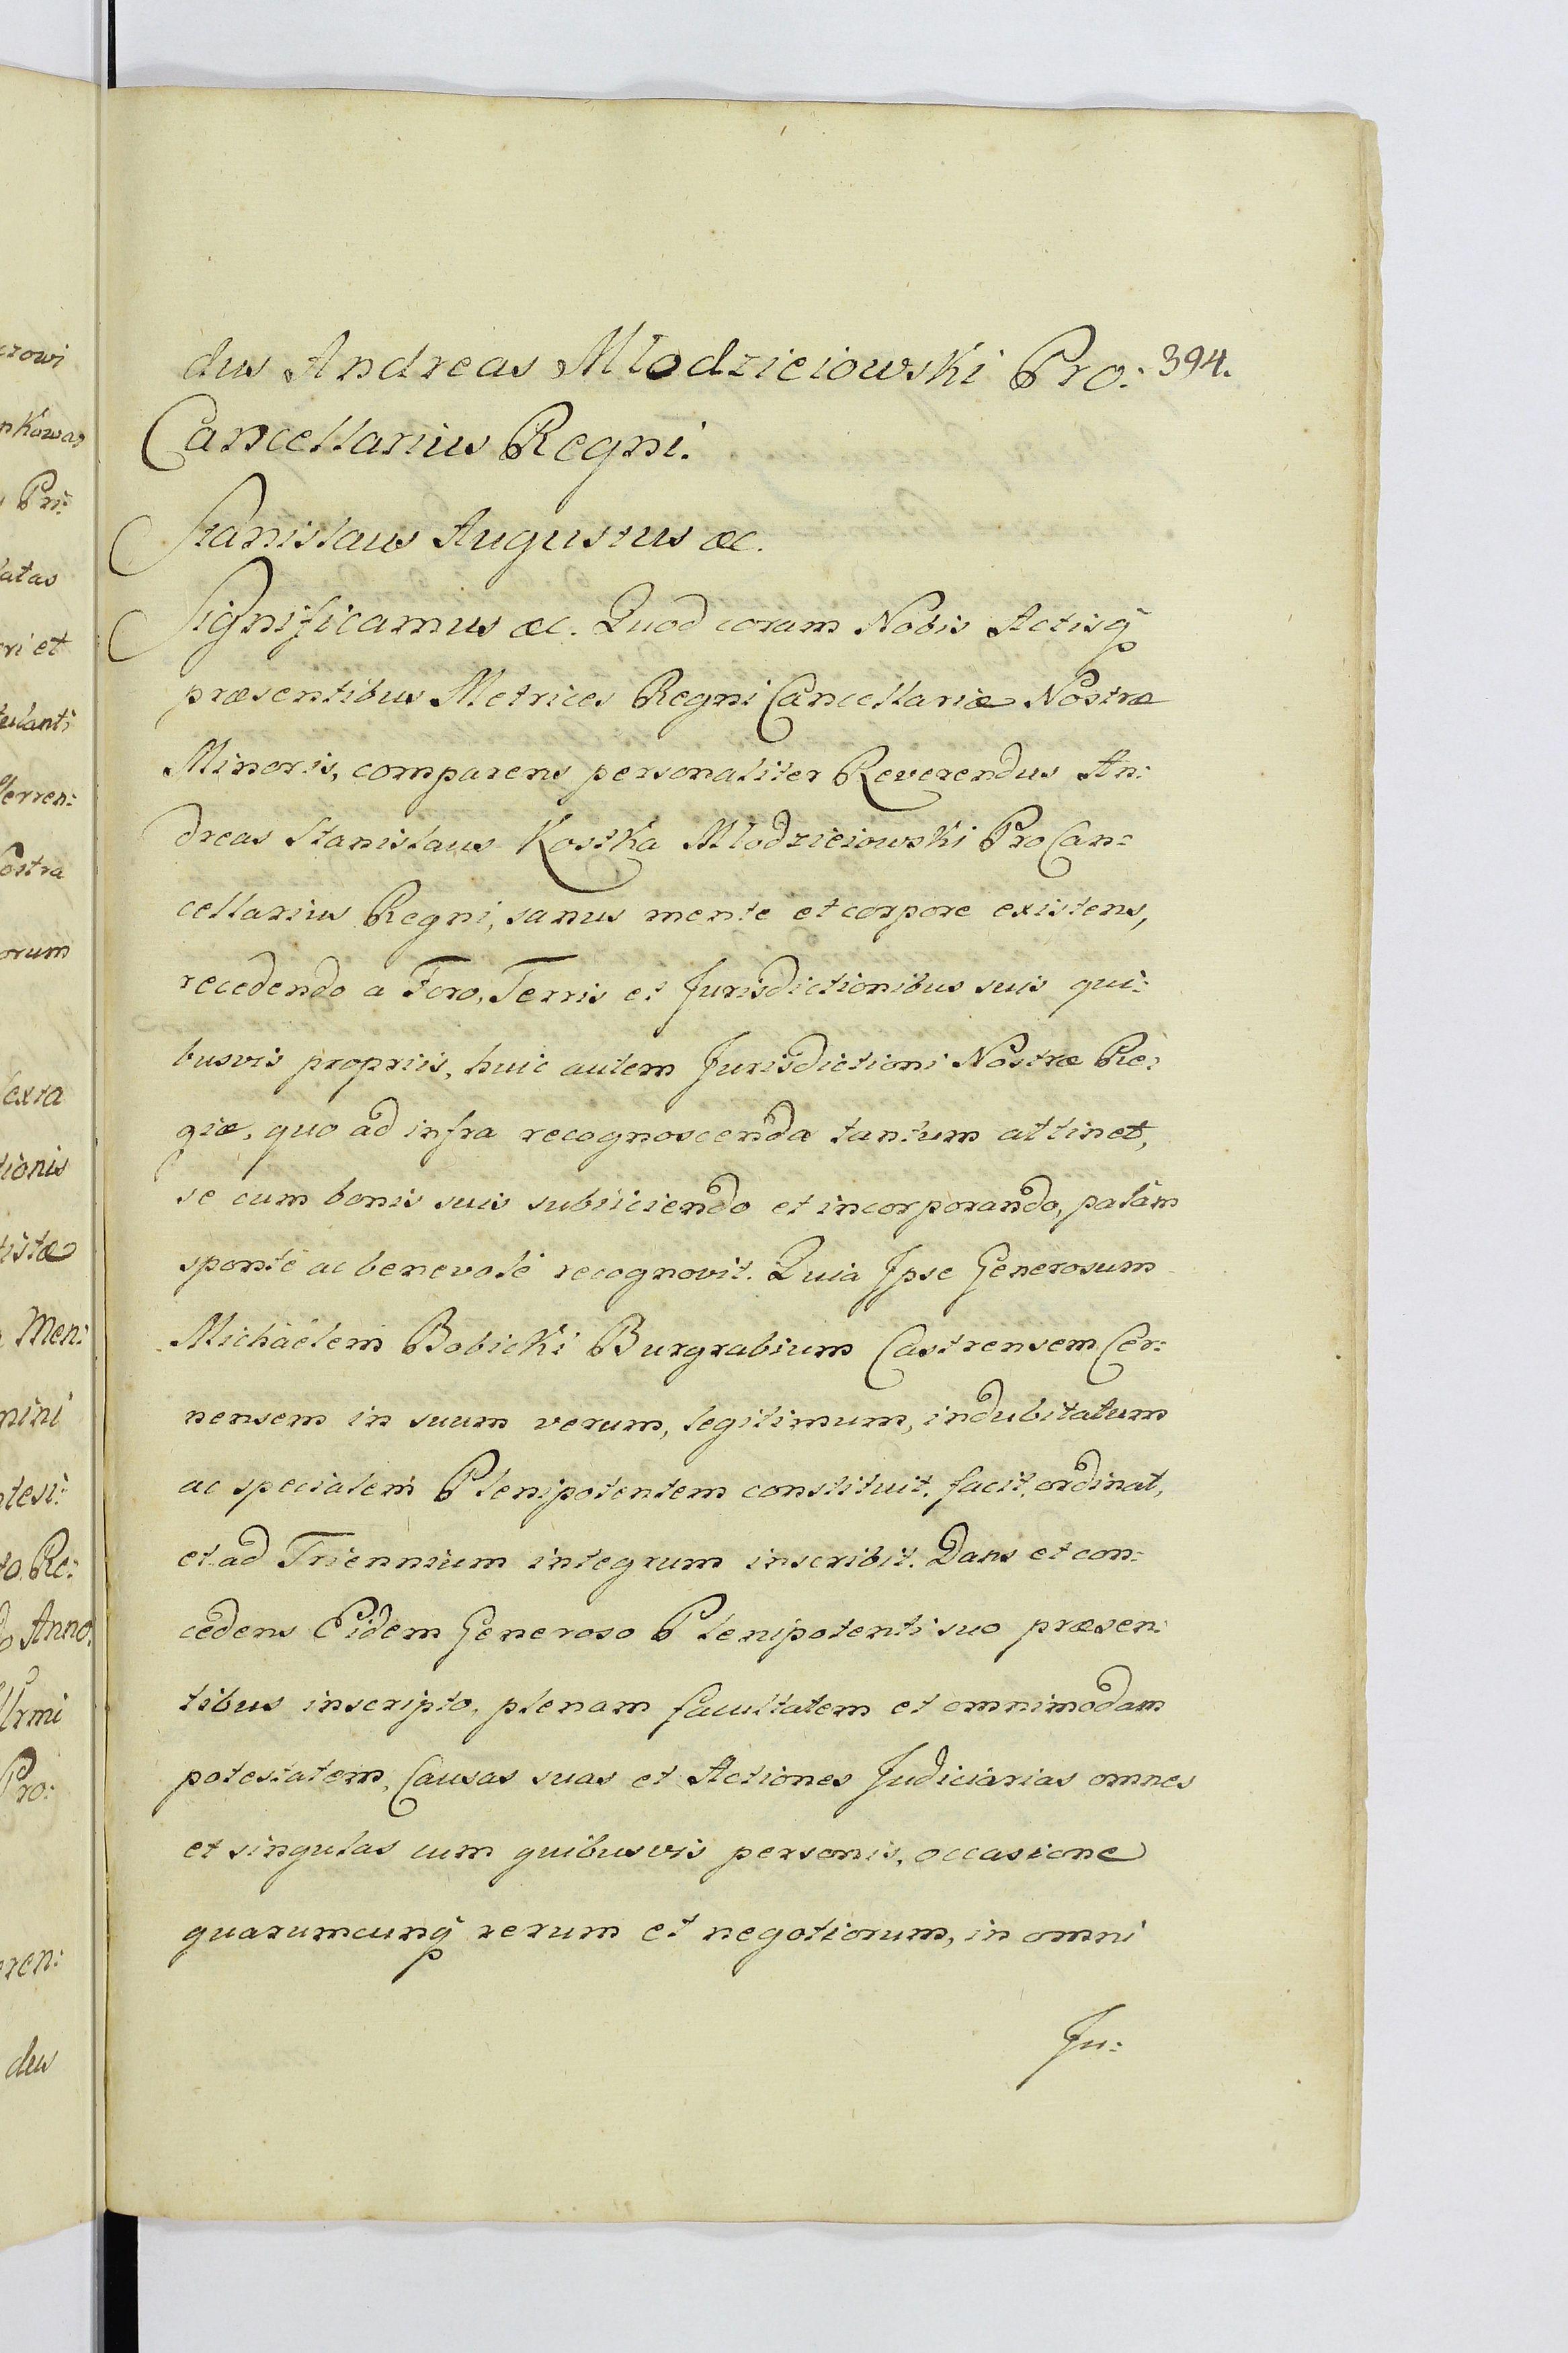 dus Andreas Mlodzieiowski Pro: 394.
Cancellarius Regni.
Stanislaus Augustus &c.
Significamus &c. Quod coram Nobis Actisq̃
præsentibus Metrices Regni Cancellariæ Nostræ
Minoris, comparens personaliter Reverendus An:
dreas Stanislaus Kostka Mlodzieiowski ProCan:
cellarius Regni, sanus mente et corpore existens,
recedendo a Foro, Terris et Jurisdictionibus suis qui:
busvis propriis, huic autem Jurisdictioni Nostræ Re:
giæ, quo ad infra recognoscenda tantum attinet,
se cum bonis suis subiiciendo et incorporando, palàm
spontè ac benevolè recognovit. Quia Ipse Generosum
Michaëlem Bobicki Burgrabium Castrensem Cer:
nensem in suum verum, legitimum, indubitatum
ac specialem Plenipotentem constituit, facit, ordinat,
et ad Triennium integrum inscribit. Dans et con:
cedens Eidem Generoso Plenipotenti suo præsen:
tibus inscripto, plenam facultatem et omnimodam
potestatem, Causas suas et Actiones Judiciarias omnes
et singulas cum quibusvis personis, occasione
quarumcunq̃ rerum et negotiorum, in omni
Ju: